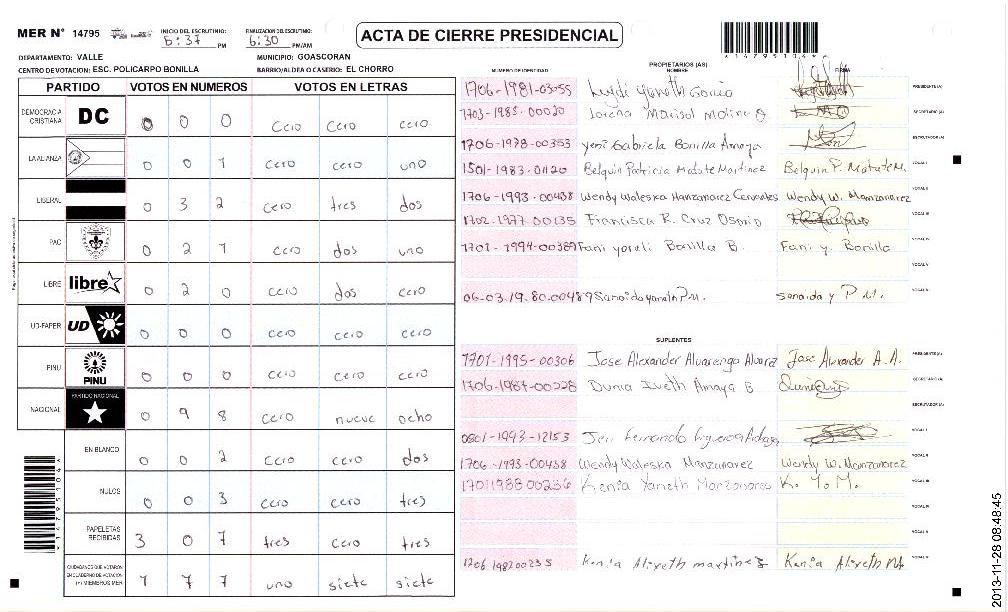 MER Nº 14795
INICIO DEL ESCRUTINIO: 5:37 PM
FINALIZACION DEL ESCRUTINIO: 6:30 PM/AM
ACTA DE CIERRE PRESIDENCIAL
*14795104*
DEPARTAMENTO: VALLE
MUNICIPIO: GOASCORAN
CENTRO DE VOTACION: ESC. POLICARPO BONILLA
BARRIO/ALDEA O CASERIO: EL CHORRO
PARTIDO VOTOS EN NUMEROS VOTOS EN LETRAS
DEMOCRACIA CRISTIANA DC 0 0 0 cero cero cero
LA ALIANZA 0 0 1 cero cero uno
LIBERAL 0 3 2 cero tres dos
PAC 0 2 1 cero dos uno
LIBRE libre 0 2 0 cero dos cero
UD-FAPER UD 0 0 0 cero cero cero
PINU PINU 0 0 0 cero cero cero
NACIONAL PARTIDO NACIONAL 0 9 8 cero nueve ocho
EN BLANCO 0 0 2 cero cero dos
NULOS 0 0 3 cero cero tres
PAPELETAS RECIBIDAS 3 0 7 tres cero tres
CIUDADANOS QUE VOTARON EN CUADERNO DE VOTACION (+) MIEMBROS MER 1 7 7 uno siete siete
*14795104*
PROPIETARIOS (AS)
NUMERO DE IDENTIDAD NOMBRE FIRMA
1706-1981-03055 PRESIDENTE (A)
1703-1985-00020 Lorena Marisol Molina SECRETARIO (A)
1706-1978-00353 Yeni Gabriela Bonilla Amaya ESCRUTADOR (A)
1501-1983-01120 Belquin Patricia Matute Martinez Belquin P. Matute M. VOCAL I
1706-1993-00438 Wendy Waleska Manzanarez Wendy W. Manzanarez VOCAL II
1702-1977-00135 Francisca R. Cruz Osorio VOCAL III
1701-1994-00389 Fani yoreli Bonilla B. Fani y. Bonilla VOCAL IV
VOCAL V
06-03.19.80.00489 sanaida y P.M. VOCAL VI
SUPLENTES
1701-1995-00306 Jose Alexander Alvarenga Alvarez Jose Alexander A. A. PRESIDENTE (A)
1706-1987-00228 Dunia Iveth Amaya B SECRETARIO (A)
ESCRUTADOR (A)
0801-1993-12153 Fernando VOCAL I
1706-1993-00438 Wendy Waleska Manzanarez Wendy W. Manzanarez VOCAL II
1701198800236 Kenia Yaneth Manzanares K. Y. M. VOCAL III
VOCAL IV
VOCAL V
1706 198200235 Kenia Alizeth martinez Kenia Alizeth VOCAL VI
2013-11-28 08:48:45